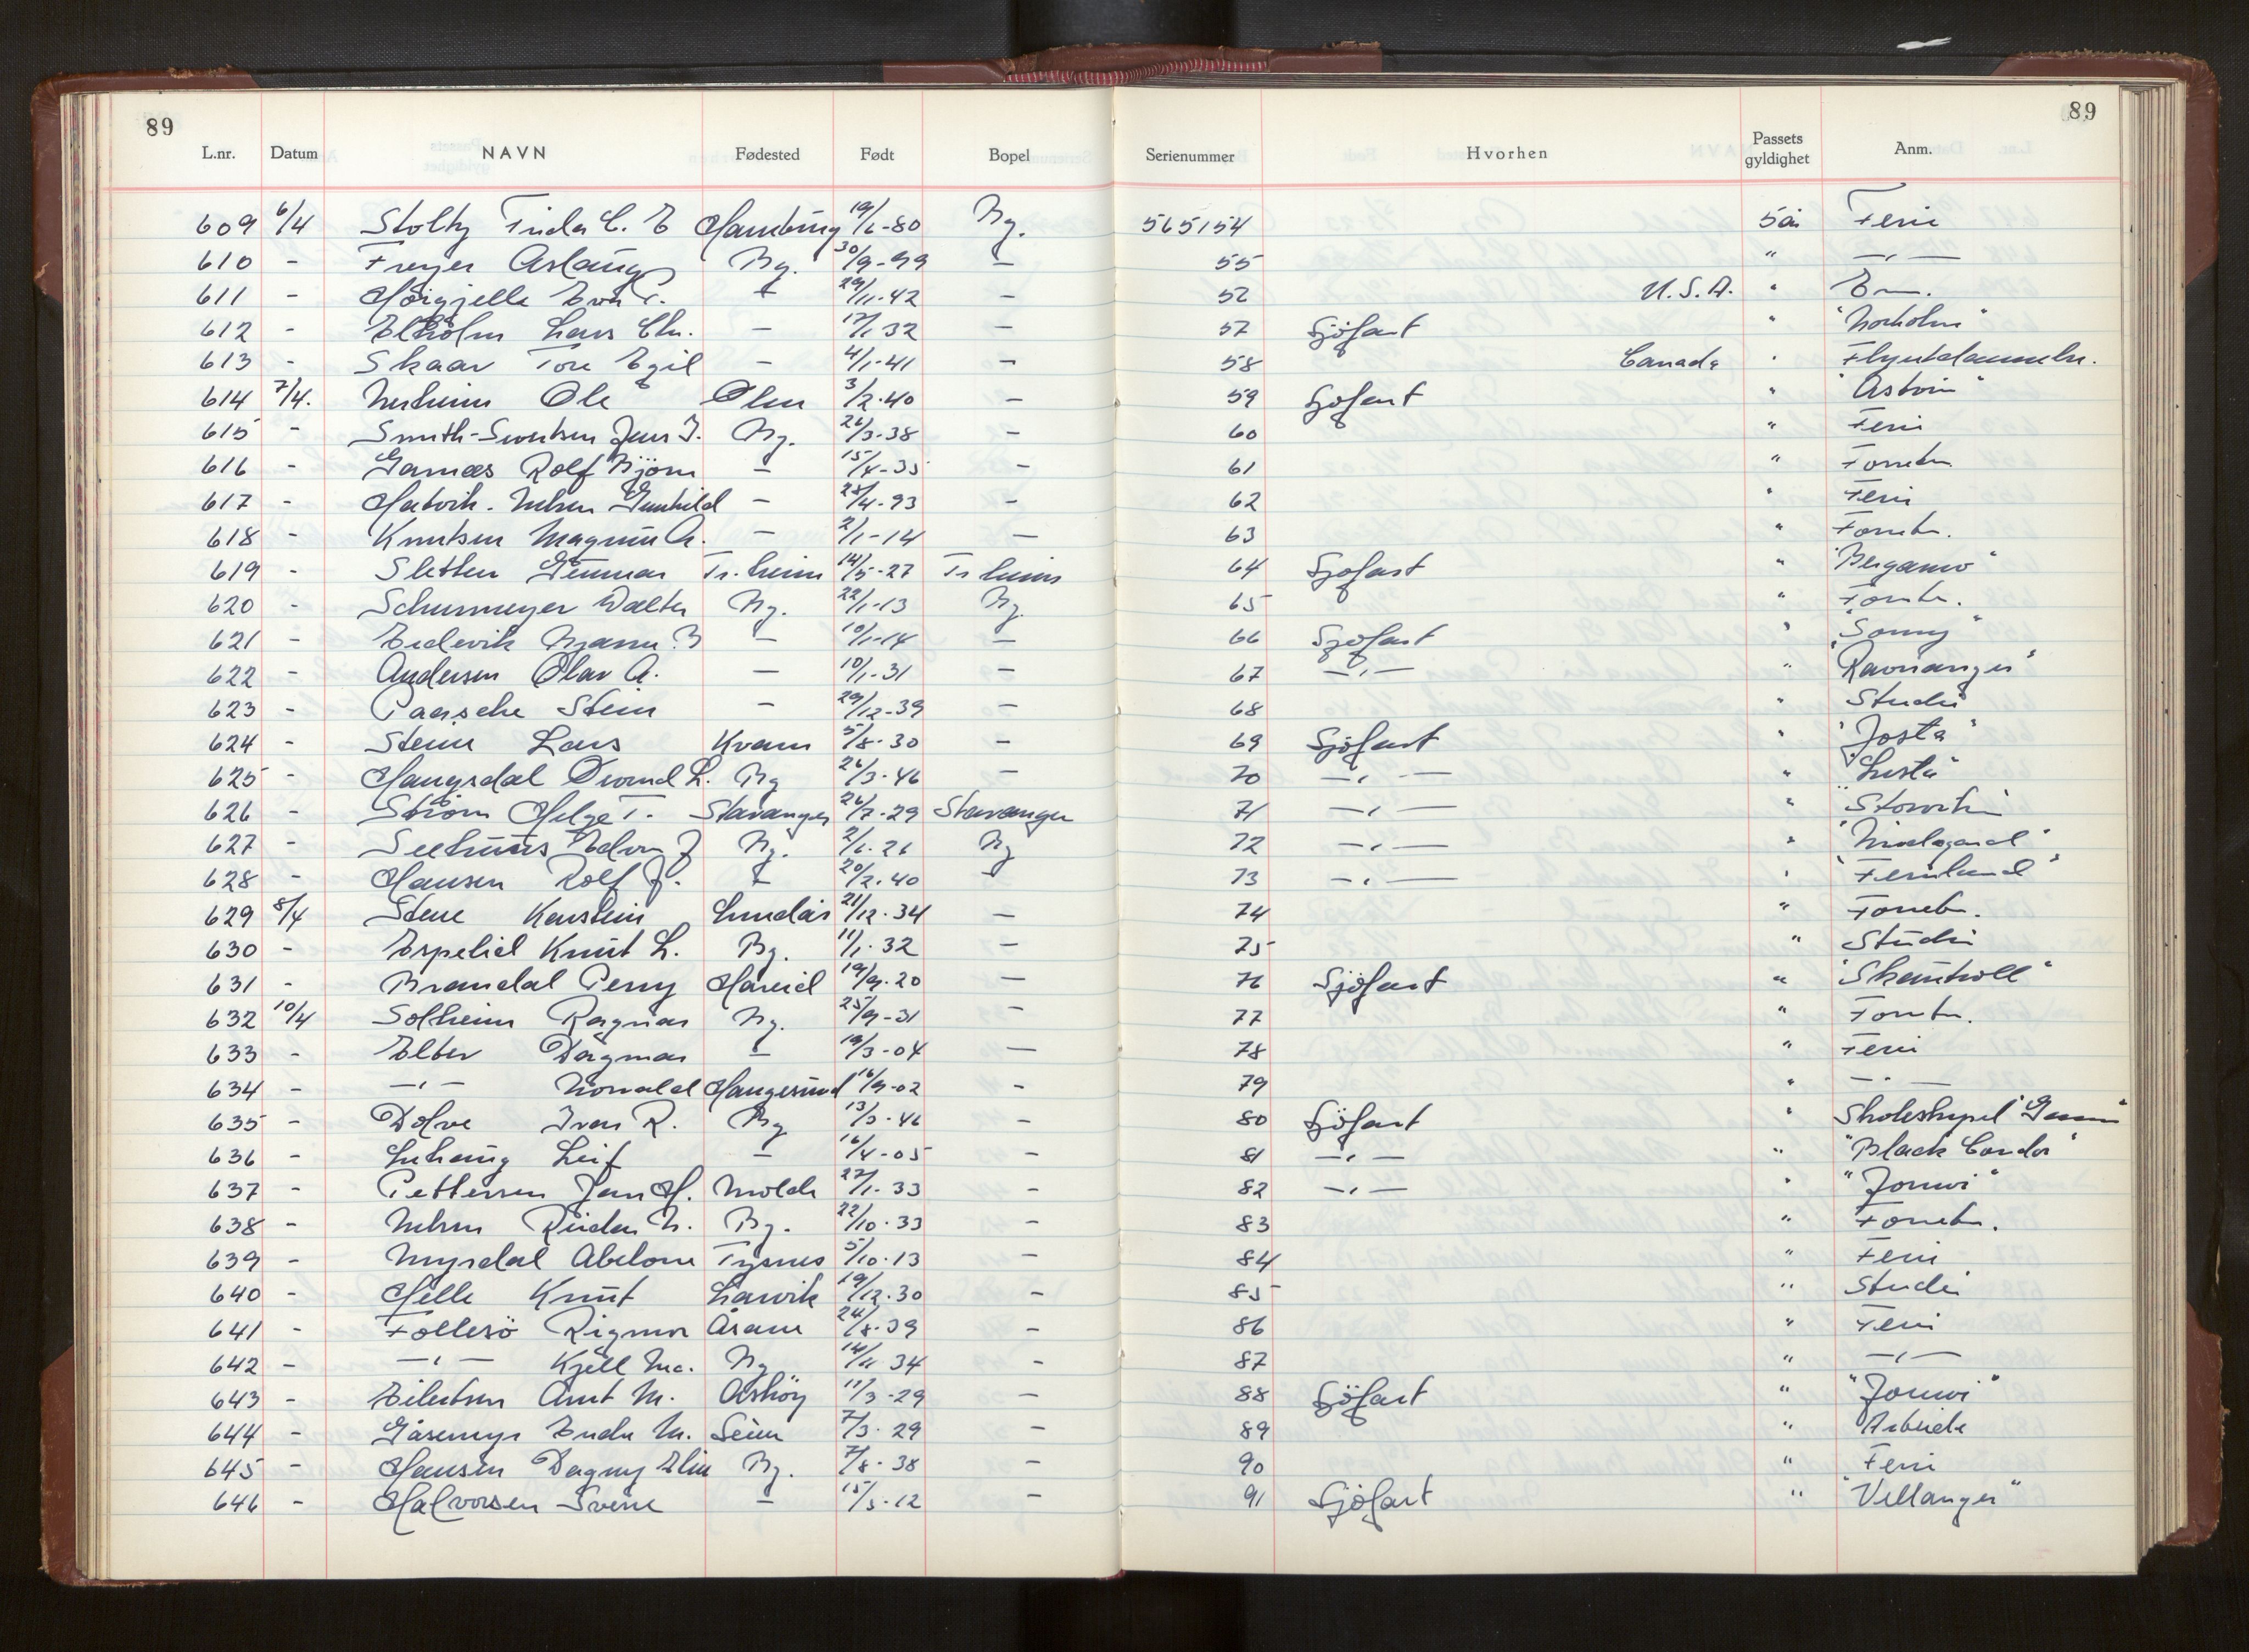 89 89
L.nr. Datum NAVN Fødested Født Bopel Serienummer Hvorhen Passets gyldighet Anm.
609 6/4 Stoltz Frida C. E Hamburg 19/6-80 Bg. 565154 5 år Ferie
610 - Freyer Aslaug Bg. 30/9-99 — 55 " —"—
611 - Eva T. — 29/11-42 — 52 U.S.A. " Em.
612 - Elholm Lars Chr. — 12/1 32 — 57 Sjöfart " "Norholm"
613 - Skaar Tore Egil — 4/1-41 — 58 Canada "
614 7/4. Nerheim Ole Ølen 3/2-40 — 59 Sjöfart "
615 - Smith-Sivertsen Jens J. Bg. 26/3-38 — 60 " Ferie
616 - Garnæs Rolf Björn — 15/4-35 — 61 " Forretn.
617 - Hatvik-Nilsen Gunhild — 25/4-93 — 62 " Ferie
618 - Knutsen Magnus A. — 2/1-14 — 63 " Forretn.
619 - Sletten Gunnar Tr.heim 14/5-27 Tr heim 64 Sjöfart " "Bergamo"
620 - Schurmeyer Walter Bg. 22/1-13 Bg. 65 " Forretn.
621 - Eidevik B — 10/1-14 — 66 Sjöfart " "Sonny"
622 - Andersen Olav A. — 10/1-31 — 67 —"— " "Ravnanger"
623 - Paasche Stein — 29/12-39 — 68 " Studie
624 - Steine Lars Kvam 5/8-30 — 69 Sjöfart " "Josta"
625 - Haugsdal Øivind L. Bg 26/3-46 — 70 —"— " "Lusta"
626 - Ström Helge T. Stavanger 26/7-29 Stavanger 71 —"— "
627 - Seehuus J Bg. 2/6-26 Bg 72 —"— "
628 - Hansen Rolf J. — 20/2-40 — 73 —"— " "Fernland"
629 8/4 Stene Karstein Lindås 21/12-34 — 74 " Forretn.
630 - Espelid Knut L. Bg. 11/1-32 — 75 " Studie
631 - Brandal Perry Hareid 19/9-20 — 76 Sjöfart " "Skautroll"
632 10/4 Solheim Ragnar Bg. 25/9-31 — 77 " Forretn.
633 - Elter Dagmar — 19/3-04 — 78 " Ferie
634 - —"— Norvald Haugesund 16/9-02 - 79 " —"—
635 - Dolve Ivar R. Bg 13/3-46 — 80 Sjöfart " Skoleskipet "Gann"
636 - Lihaug Leif — 16/4-05 — 81 —"— " "Black Condor"
637 - Pettersen Jan H. Molde 27/1-33 — 82 —"— " "Jomvi"
638 - Nilsen Reidar N. Bg. 22/10-33 — 83 " Forretn.
639 - Myrdal Abelone Tysnes 5/10-13 — 84 " Ferie
640 - Helle Knut Larvik 19/12-30 — 85 " Studie
641 - Follesö Rigmor Åsane 24/8-39 — 86 " Ferie
642 - —"— Kjell Mc. Bg 14/11 34 - 87 " —"—
643 - Eilertsen Arnt M. Askøy 11/3-29 — 88 Sjöfart " "Jomvi"
644 - Gåsemyr Endre M. Seim 7/3-29 — 89 " Arbeide
645 - Hansen Dagny Elin Bg. 7/8-38 — 90 " Ferie
646 - Halvorsen Sverre — 15/5-12 — 91 Sjöfart " "Villanger"